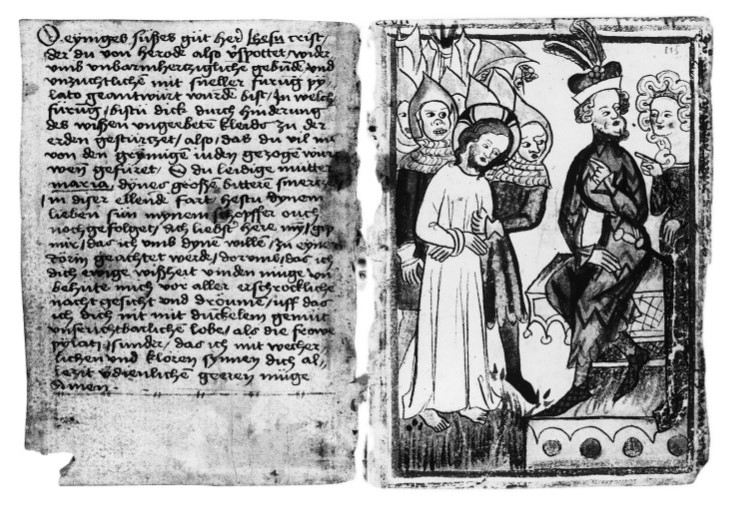 O eyniges süßes güt herʒ Jhesu crist/
der du von herode also vʼspottet/wider
vmb vnbarmherczigliche gebūdē vnd
vnzuchtliche mit sneller furūg py
lato geantwürt wurde bist/In welch
fürūg/bistu dick durch hinderung
des wißen vngerebete kleids zu der
erden gesturczet/also/das du vil
von den grymige iuden gezogē
wen gefüret/O du leidige mutter
maria/dynes große bittere smercz
in diser ellend fart/hestu dynem
lieben sün mynem schopffer ouch
nochgefolget/Ach liebst here
mir/das ich vmb dyne wille/zu eynē
törin geachtet werde/dorumb/das ich
dich ewige wißheit vinden müge vn
behüte mich vor aller erschröckliche
nachtgesicht vnd dröume/uff das
ich dich nit mit duckelem gemüt
vnfruchtbarliche lobe/als die frowe
pylati/sunder/das ich mit wecker
lichen vnd kloren synnen dich al/
lezit vʼdienlichē geeren müge
Amen.